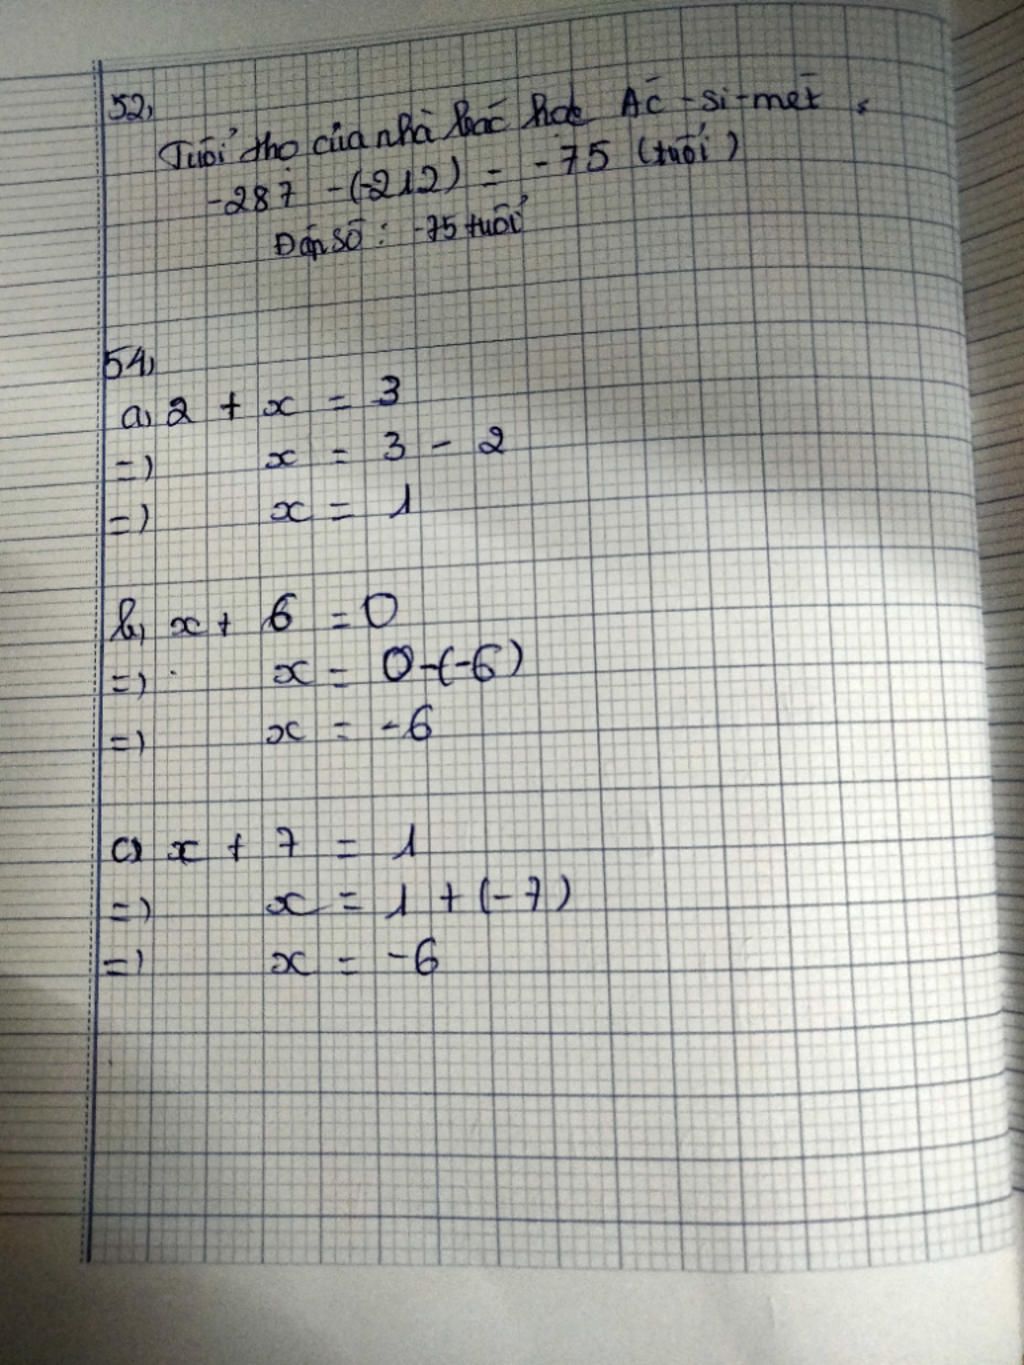 52,
Tuổi thọ của nhà bác học Ác-si-mét
-287 -(-212) = -75 (tuổi)
Đáp số: -75 tuổi
54,
a, 2 + x = 3
=) x = 3 - 2
=) x = 1
b, x + 6 = 0
=) x = 0-(-6)
=) x = -6
c, x + 7 = 1
=) x = 1 + (-7)
=) x = -6